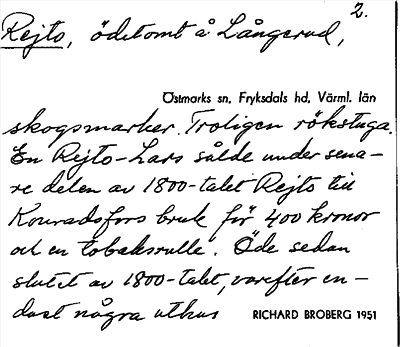 Rejto, ödetomt å Långerud,
2.
Östmarks sn, Fryksdals hd, Värml. län
skogsmarker. Troligen rökstuga.
En Rejto-Lars sålde under sena-
re delen av 1800-talet Rejto till
Konradsfors bruk för 400 kronor
och en tobaksrulle. Öde sedan
slutet av 1800-talet, varefter en-
dast några uthus
RICHARD BROBERG 1951